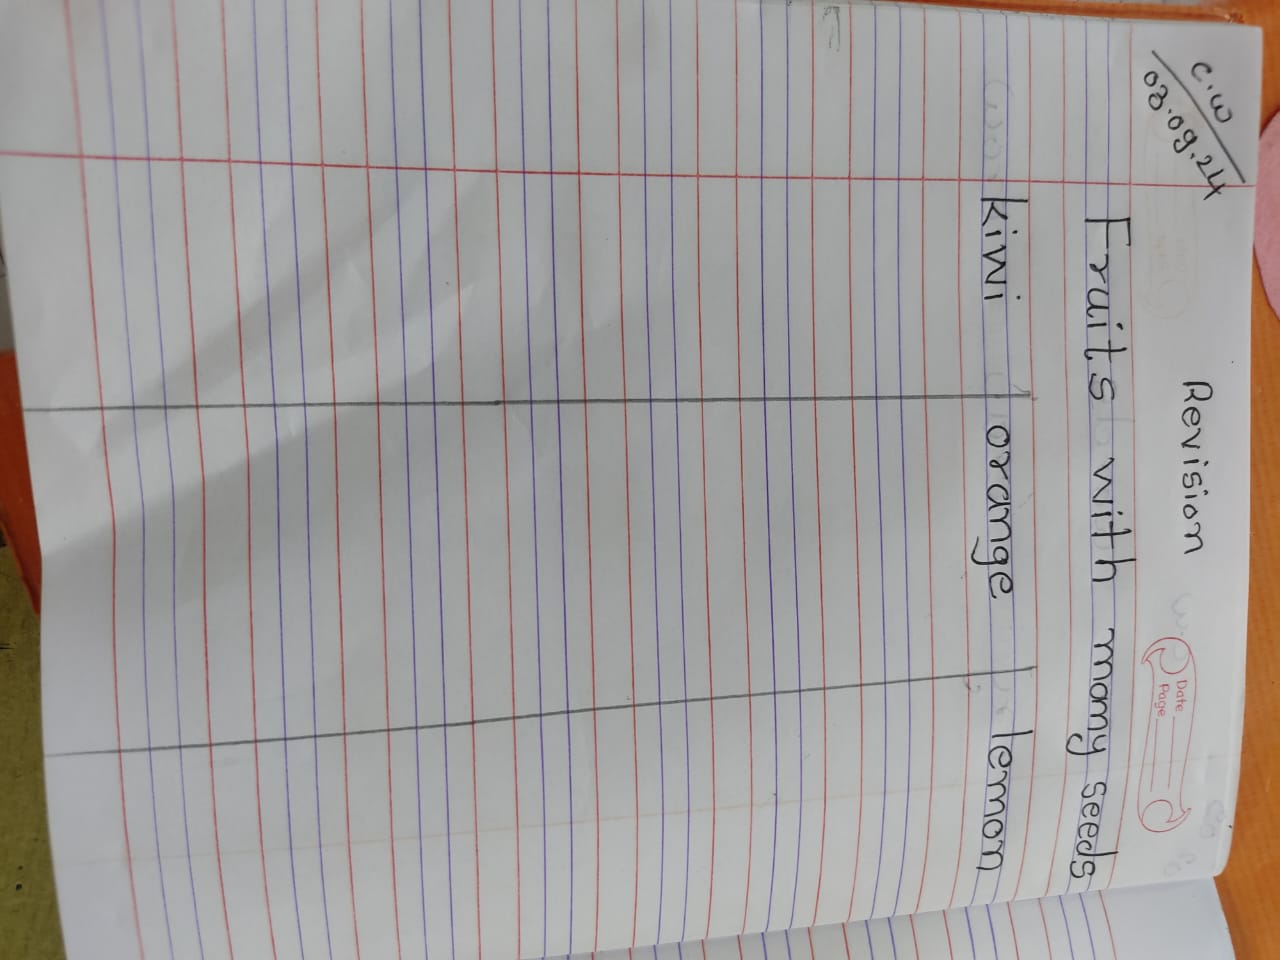 C.W
03.09.24
Revision
Date
Page
Fruits with many seeds
kiwi orange lemon